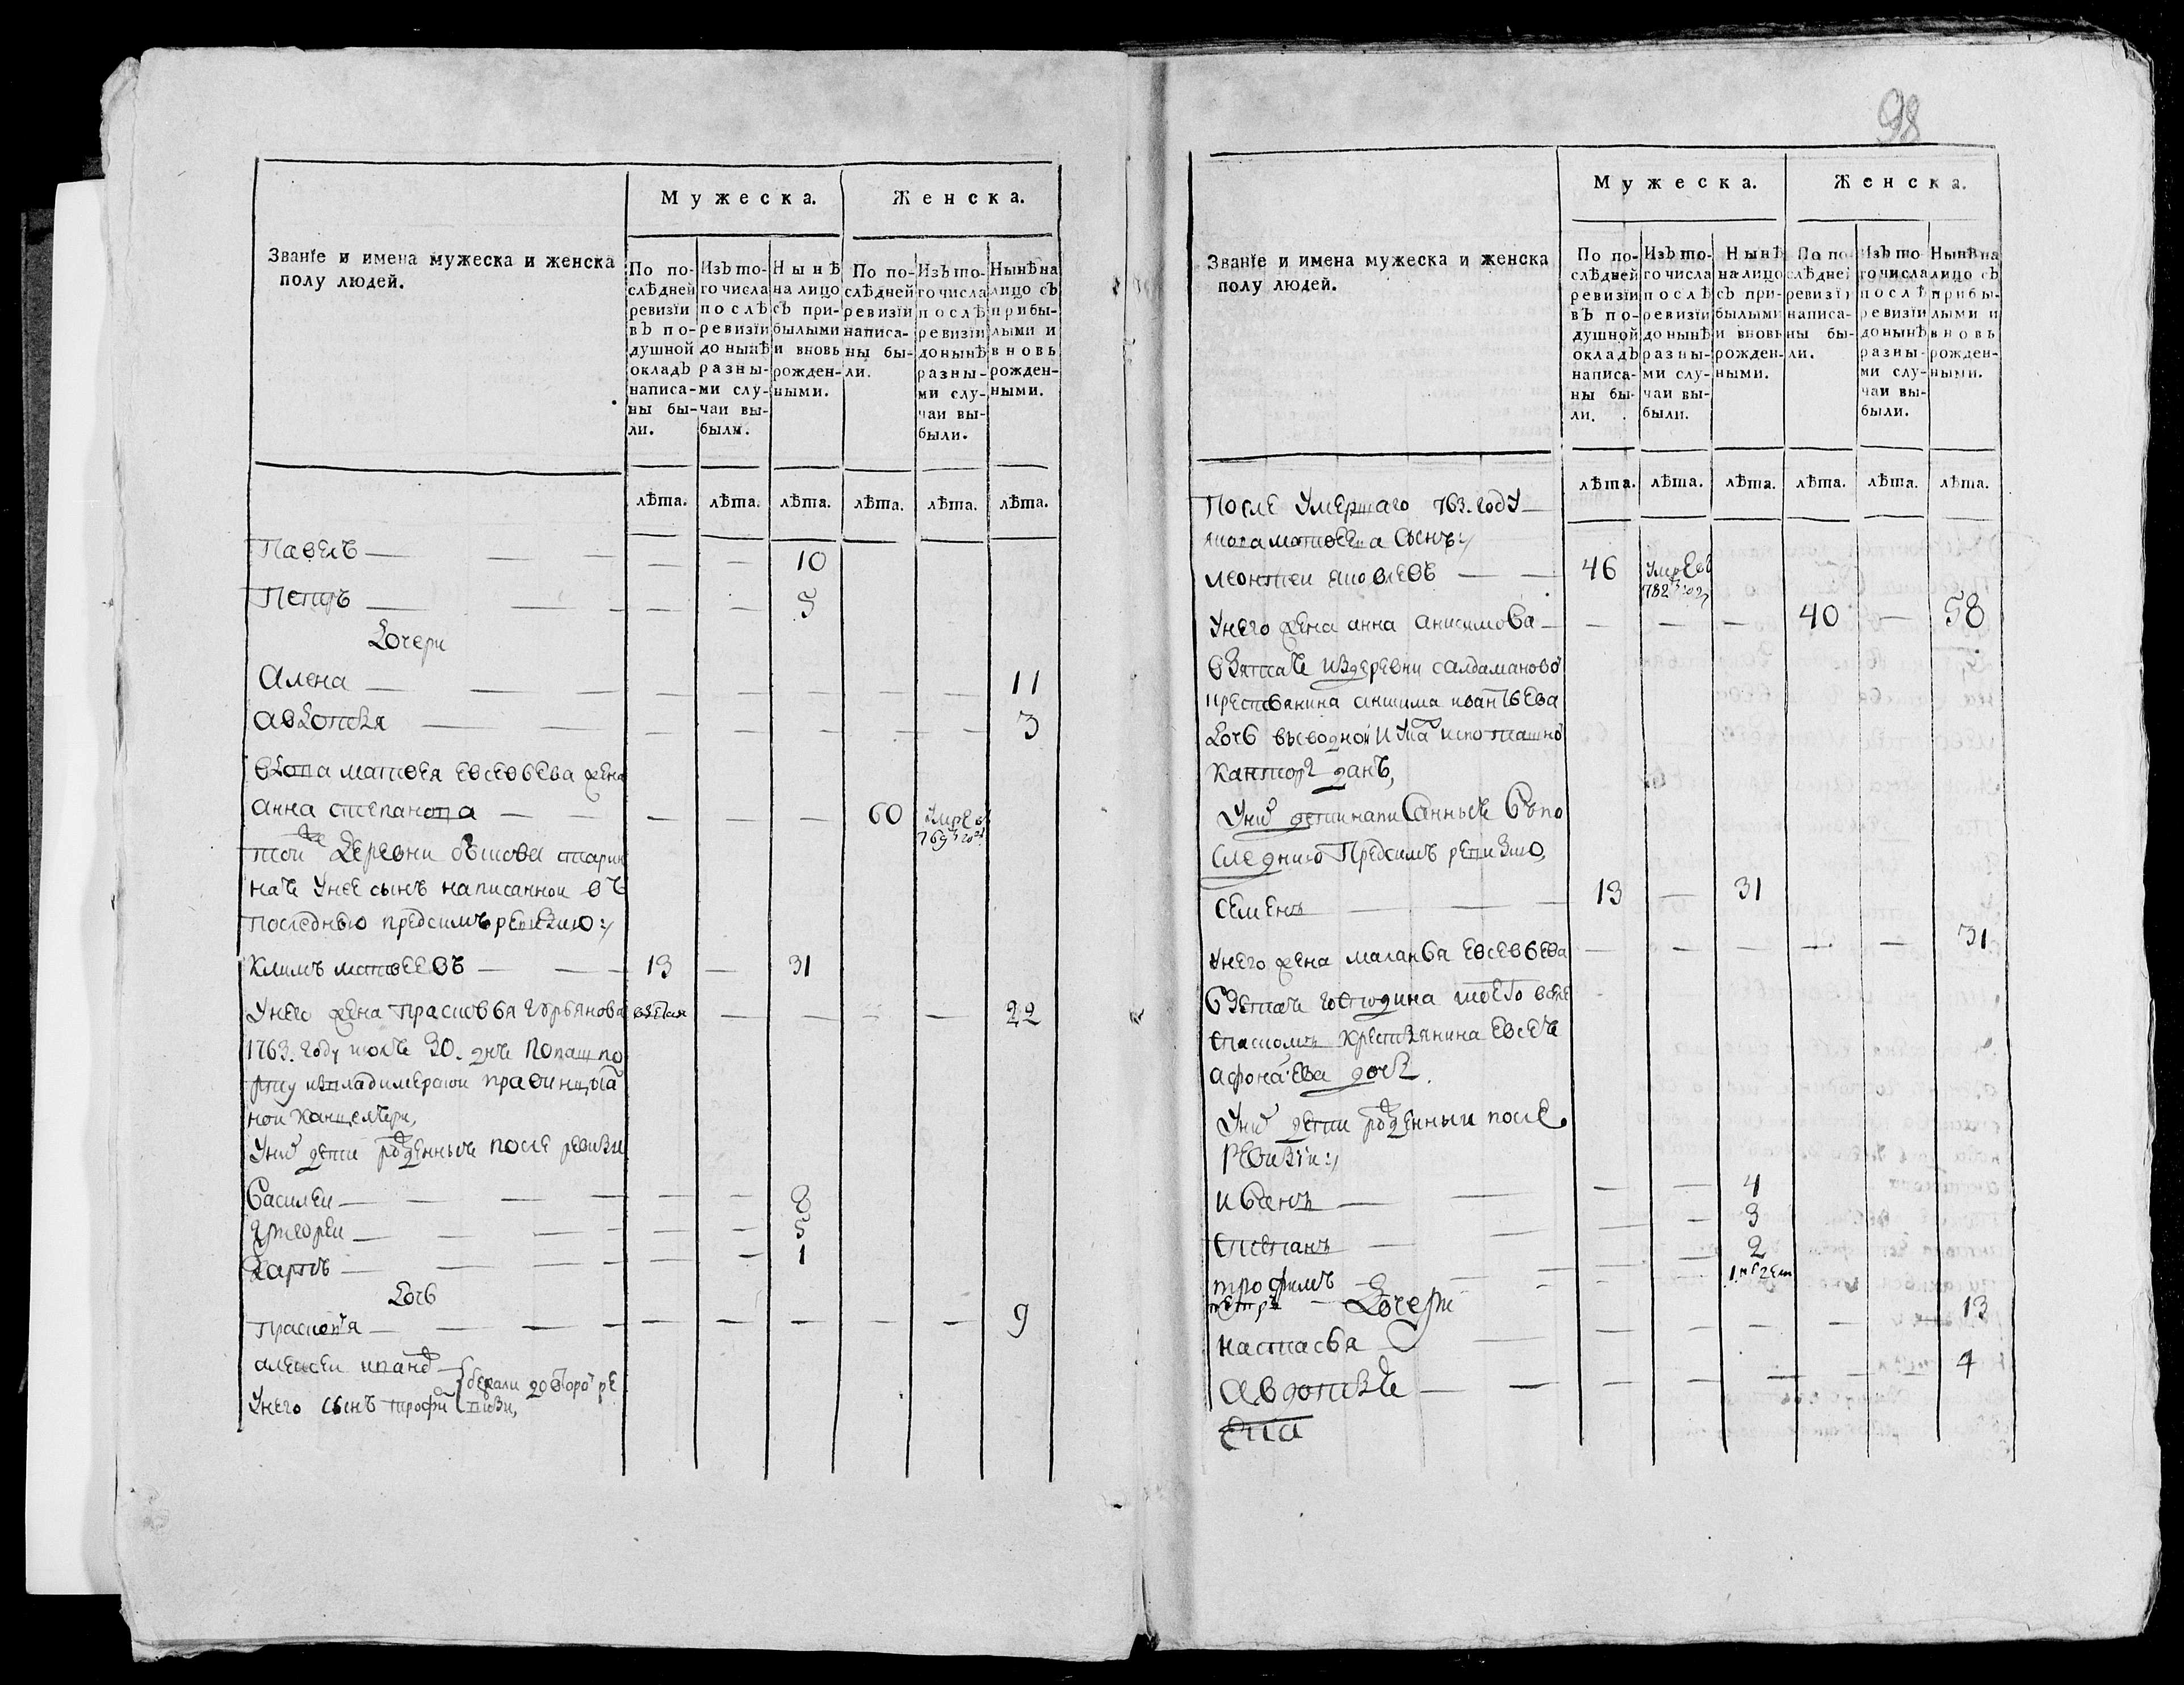 98
Мужеска. Женска.
Званїе и имена мужеска и женска
полу людей.
По последней ревизїи въ подушной окладъ написаны были.
Изъ того числа после ревизїи до нынѣ разными случаи выбыли.
Нынѣ на лицо съ прибылыми и вновь рожденными.
По последней ревизїи написаны были.
Изъ того числа послѣ ревизїи до нынѣ разными случаи выбыли.
Нынѣ на лицо съ прибылыми и вновь рожденными.
лѣта. лѣта. лѣта. лѣта. лѣта. лѣта.
Павелъ — — — — — 10
Петръ — — — — — 5
Дочери
Алена — — — — — — — — 11
авдотья — — — — — — — — 3
вдова матвея евсевьева жена
анна степанова — — — — — 60 умре в 769 году
той же деревни
наѣ унее сынъ написанной въ
последнюю предсимъ ревизию:/
Климъ матвеевъ — — — 13 — 31
Унего жена прасковья гурьянова взетая — — — — 22
1763. году июлѣ 30. днѣ попашпо
рту извладимерской правинцыа
ной канцелѣри,
Уних дети рожденныѣ после ревизи
Василеи — — — — — 8
Григореи — — — — — 5
Карпъ — — — — — 1
Дочь
прасковья — — — — — — — — 9
алексеи иванов
Унего сынъ трофим бежали до второй ре
визи,
Мужеска. Женска.
Званїе и имена мужеска и женска
полу людей.
По последней ревизїи въ подушной окладъ написаны были.
Изъ того числа послѣ ревизїи до нынѣ разными случаи выбыли.
Нынѣ на лицо съ прибылыми и вновь рожденными.
По последней ревизїи написаны были.
Изъ того числа послѣ ревизїи до нынѣ разными случаи выбыли.
Нынѣ на лицо съ прибылыми и вновь рожденными.
лѣта. лѣта. лѣта. лѣта. лѣта. лѣта.
После Умершаго 763. году
якова матвеева сынъ:/
леонтеи яковлевъ — — 46 умре в 782 году
Унего жена анна анисимова — — — — 40 — 58
взятаѣ издеревни салдаманово
крестьянина анисима игнатьева
дочь
канторе данъ,
Уних дети написанныѣ въпо
следнию Предсимъ ревизию,
Семенъ — — — 13 — 31
Унего жена маланья евсевьева — — — — — 31
взетаѣ господина
крестьянина евсеѣ
афонасьева дочь.
Уних дети рожденныи после
ревизїи:/
Иванъ — — — — 4
Степанъ — — — — 3
трофимъ — — — — 2
петръ — — — 1 недель
Дочери
настасья — — — — — — — 13
Авдотьѣ — — — — — — — 4